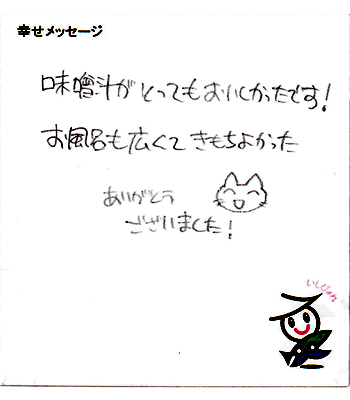 幸せメッセージ
味噌汁がとってもおいしかったです!
お風呂も広くてきもちよかった
ありがとう
ございました!